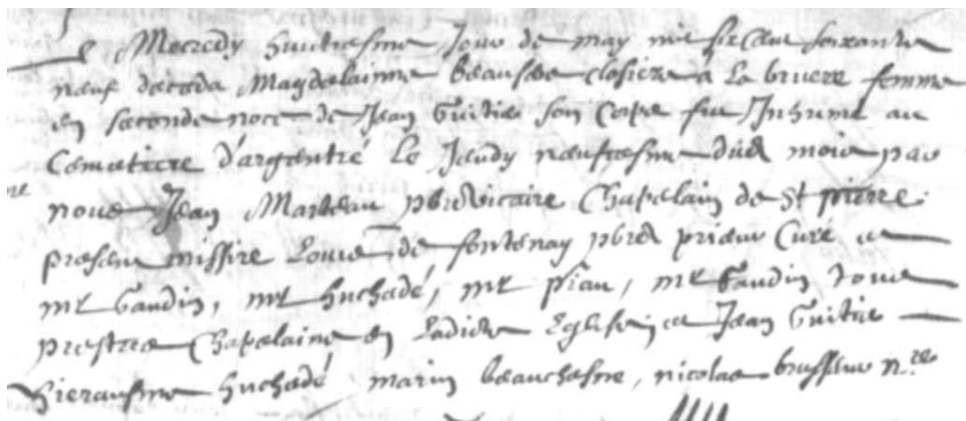 Le Mecredy huictiesme Jour de may mil six cent soixante
neuf deceda Magdelainne closiere à La bruere femme
en seconde noce de Jean Guitter son Corps fut Inhumé au
Cemitiere d'argentré Le Jeudy neufiesme dud mois par
nous Jean Marteau pbre Vicaire Chapelain de St pierre
presens missire Louis de fontenay pbre prieur Curé et
mr Gaudin, mr huchedé, mr piau, mr Gaudin tous
prestres Chapelains en Ladicte Eglise, et Jean Guitter
hierausme huchedé marin beauchesne, nicolas n.re